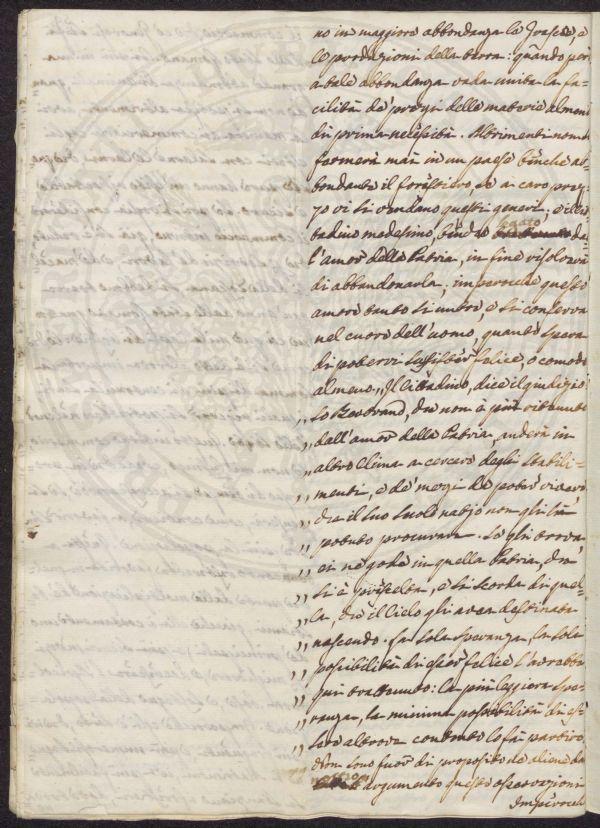 no in maggiore abbondanza le grascie, e
le produzioni della terra: quando però
a tale abbondanza vada unita la fa-
cilità de' prezzi delle materie almeno
di prima necèssità. Altrimenti non si
fermerà mai in un paese bènche ab-
bondante il forèstiero, se a caro prez-
zo vi si vendano questi generi; e il cit-
tadino medesimo, bènche legato da
l'amor della Patria, in fine risolverà
di abbandonarla; imperocche questo
amore tanto si nutre, e si conserva
nel cuore dell'uomo, quanto spera
di potervi sussister felice, o comodo
almeno. ,, Il Cittadino, dice il giudizio-
,, so Bertrand, che non è più ritenuto
,, dall'amor della Patria, anderà in
,, altro Clima a cercare degli stabili-
,, menti, e de' mezzi de poter vivere
,, che il suo suolo natio non gli hà
,, potuto procurare. Se gli trova,
,, ei ne gode in quella Patria, che
,, si è prescelta, e si scorda di quel-
,, la, che il Cielo gli avea destinata
,, nascendo. La sola speranza, la sola
,, possibilità di esser felice l'avrebbe
,, quì trattenuto: la più leggiera spe-
,, ranza, la minima possibilità di es-
,, serlo altrove contento lo fà partire.
Non sono fuor di proposito ne aliene dal
argomento queste osservazioni
Imperocchè